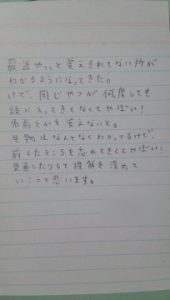 最近やっっと覚えきれてない所が
わかるようになってきた。
けど、同じやつが何度しても
頭に入ってきてくなくてやばい!
名前とかを覚えないと。
生物はなんとなくわかってるけど、
前したところを忘れてきててやばい!
見直したりして理解を深めて
いこうと思います。